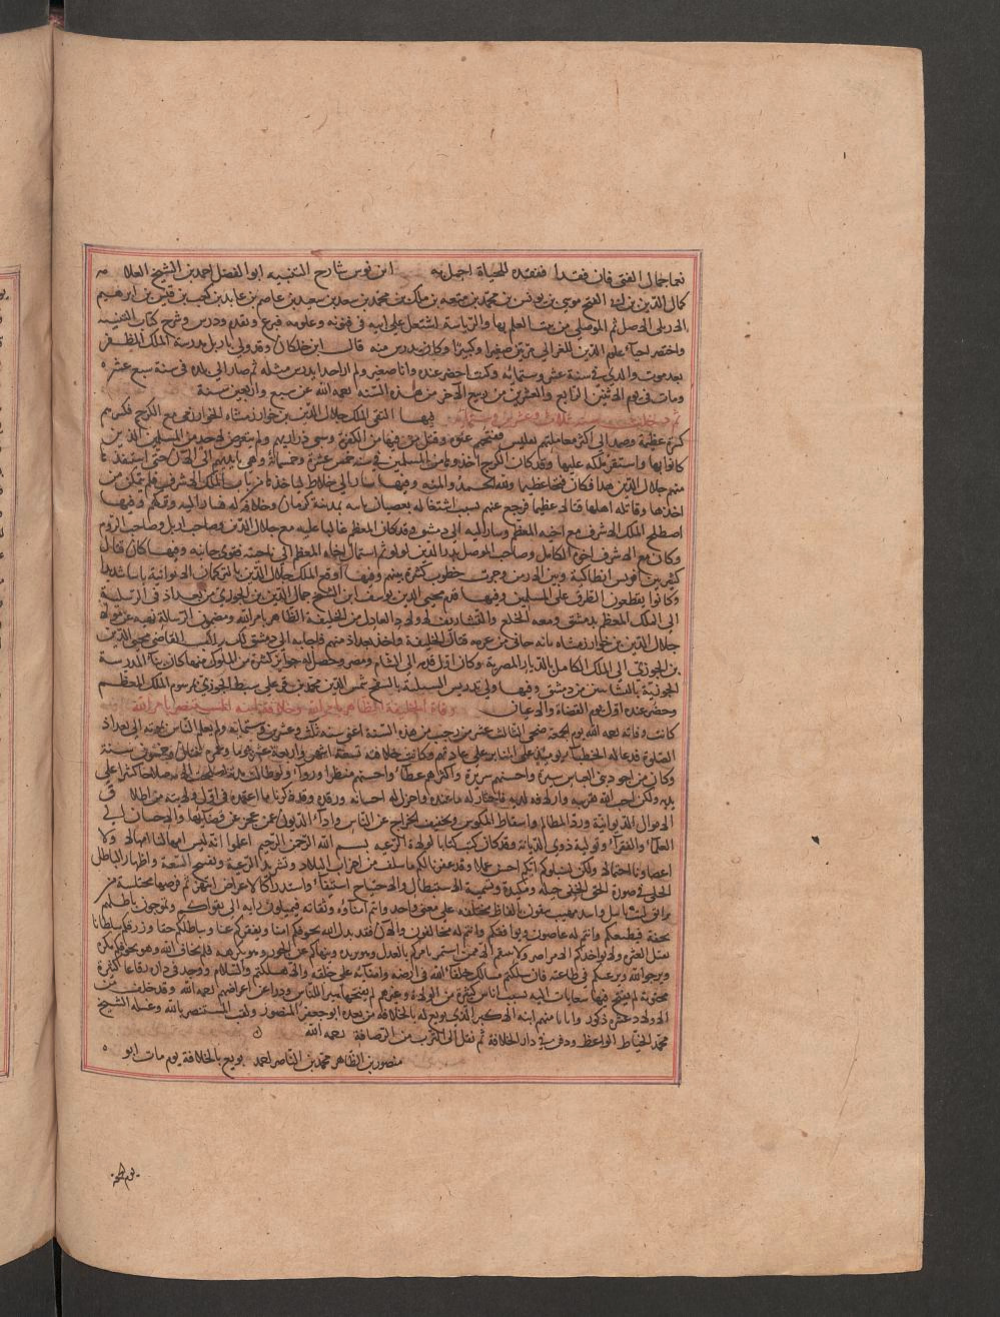 فما جمال الفتى فان فقدا ففقده للحياة اجمل به ابن يونس شارح التنبيه ابو الفضل احمد بن الشيخ العلا مه
كمال الدين بن ابى الفتح موسى بن يونس بن محمد بن منعه بن مالك بن محمد بن سعد بن سعيد بن عاصم بن عايد بن كعب بن قيس بن ابرهيم
الاربلى الاصل ثم الموصلى من بيت العلم بها والرياسة اشتغل على ابيه فى فنونه وعلومه فبرع وتقدم ودرس وشرح كتاب التنبيه
واختصر احياء علوم الدين للغزالى مرتين صغيرا وكبيرا وكان يدرس منه قال ابن خلكان وقد ولى باربل مدرسة الملك المظفر
بعد موت والدى فى سنة عشر وستمائة وكنت احضر عنده وانا صغير ولم ار احدا يدرس مثله ثم صار الى بلده فى سنة سبع عشره
ومات فى يوم الاثنين الرابع والعشرين من ربيع الآخر من هذه السنة رحمه الله عن سبع واربعين سنة
ثم دخلت سنة ثلاث وعشرين وستمائة فيها التقى الملك جلال الدين بن خوارزم شاه الخوارزمى مع الكرج فكسرهم
كسرة عظيمة وصمد الى اكثر معاملتهم تفليس ففتحها عنوة وقتل من فيها من الكفرة وسبى ذراريهم ولم يتعرض لاحد من المسلمين الذين
كانوا بها واستقر ملكه عليها وقد كان الكرج اخذوها من المسلمين فى سنة خمس عشرة وخمسمائة وهى بايديهم الى الآن حتى استنقذها
منهم جلال الدين هذا فكان فتحا عظيما ولله الحمد والمنه وفيها سار الى خلاط لياخذها من نايب الملك الاشرف فلم يتمكن من
اخذها وقاتله اهلها قتالا عظيما فرجع عنهم بسبب اشتغاله بعصيان نايبه بمدينة كرمان وخلافه له فسار اليه وتركهم وفيها
اصطلح الملك الاشرف مع اخيه المعظم وسار اليه الى دمشق وقد كان المعظم ممالئا عليه مع جلال الدين وصاحب اربل وصاحب الروم
وكان مع الاشرف اخوه الكامل وصاحب الموصل بدر الدين لولو ثم استمال اخاه المعظم الى ناحيته فقوى جانبه وفيها كان قتال
كثير بين ابرنس انطاكية وبين الارمن وجرت خطوب كثيرة بينهم وفيها اوقع الملك جلال الدين بالتركمان الايوانية باسا شديدا
وكانوا يقطعون الطرق على المسلمين وفيها قدم محيى الدين يوسف ابن الشيخ جمال الدين بن الجوزى من بغداد فى الرسلية
الى الملك المعظم بدمشق ومعه الخلع والتشاريف لاولاد العادل من الخليفة الظاهر بامر الله ومضمون الرسالة نهيه عن موالاة
جلال الدين بن خوارزمشاه فانه خارجى من عزمه قتال الخليفة واخذ بغداد منهم فاجابه الى ذلك وركب القاضى محيى الدين
بن الجوزى الى الملك الكامل بالديار المصرية وكان اول قدومه الى الشام ومصر وحصل له جوائز كثيرة من الملوك منها كان بناء المدرسة
الجوزية بالنشابين من دمشق وفيها ولى تدريس الشبلية بالسفح شمس الدين محمد بن قزغلى سبط الجوزى بمرسوم الملك المعظم
وحضر عنده اول يوم القضاة والاعيان وفاة الخليفة الظاهر بامر الله وخلافة ابنه المستنصر بالله
كانت وفاته رحمه الله يوم الجمعة ضحى الثالث عشر من رجب من هذه السنة اعنى سنة ثلاث وعشرين وستمائة ولم يعلم الناس بموته الى بعد
الصلوة فدعا له الخطباء يومئذ على المنابر على عادتهم وكانت خلافته تسعة اشهر واربعة عشر يوما وعمره ثنتان وخمسون سنة
وكان من اجود بنى العباس سيرة واحسنهم سريرة واكثرهم عطاء واحسنهم منظرا ورواء ولو طالت مدته لصلحت الامة صلاحا كثيرا على
يديه ولكن احب الله تقريبه وازلافه لديه فاختار له ما عنده واجزل له احسانه ورفده وقد ذكرنا ما اعتمده فى اول ولايته من اطلاق
الاموال الديوانية ورد المظالم واسقاط المكوس وتخفيف الخراج عن الناس واداء الديون عن من عجز عن قضائها والاحسان الى
العلماء والفقراء وتولية ذوى الديانة وقد كان كتب كتابا لولاة الرعية بسم الله الرحمن الرحيم اعلموا انه ليس امهالنا اهمالا ولا
اغضاونا احتمالا ولكن لنبلوكم ايكم احسن عملا وقد عفونا لكم ما سلف من اخراب البلاد وتشريد الرعية وتقبيح السمعة واظهار الباطل
الجلى فى صورة الحق الخفى حيلة ومكيدة وتسمية الاستئصال والاجتياح استيفاء واستدراكا لاغراض انتهزتم فرصها مختلسة من
براثن ليث باسل وانياب اسد مهيب تتفقون بالفاظ مختلفة على معنى واحد وانتم امناؤه وثقاته فتميلون رايه الى هواكم وتمزجون باطلكم
بحقه فيطيعكم وانتم له عاصون ويوافقكم وانتم له مخالفون والآن فقد بدل الله بخوفكم امنا وبفقركم غنا وبباطلكم حقا ورزقكم سلطانا
يقيل العثرة ولا يؤاخذ الا من اصر ولا ينتقم الا ممن استمر يامركم بالعدل وهو يريده وينهاكم عن الجور وهو يكرهه لكم يخاف الله وهو يخوفكم مكره
ويرجو الله ويرغبكم فى طاعته فان سلكتم مسالك خلفاء الله فى ارضه وامنائه على خلقه والا هلكتم والسلام ووجد فى داره رقاعا كثيرة
مختومة لم يفتح فيها سعايات اليه بسبب اناس كثيرة من الولاة وغيرهم لم يفتحها سترا للناس ودرءا عن اعراضهم رحمه الله وقد خلف من
الاولاد عشرة ذكورا واناثا منهم ابنه الاكبر الذى بويع له بالخلافة من بعده ابو جعفر المنصور ولقب المستنصر بالله وغسله الشيخ
محمد الخياط الواعظ ودفن فى دار الخلافة ثم نقل الى الترب من الرصافة رحمه الله
منصور بن الظاهر محمد بن الناصر احمد بويع بالخلافة يوم مات ابوه
يوم الجمعة